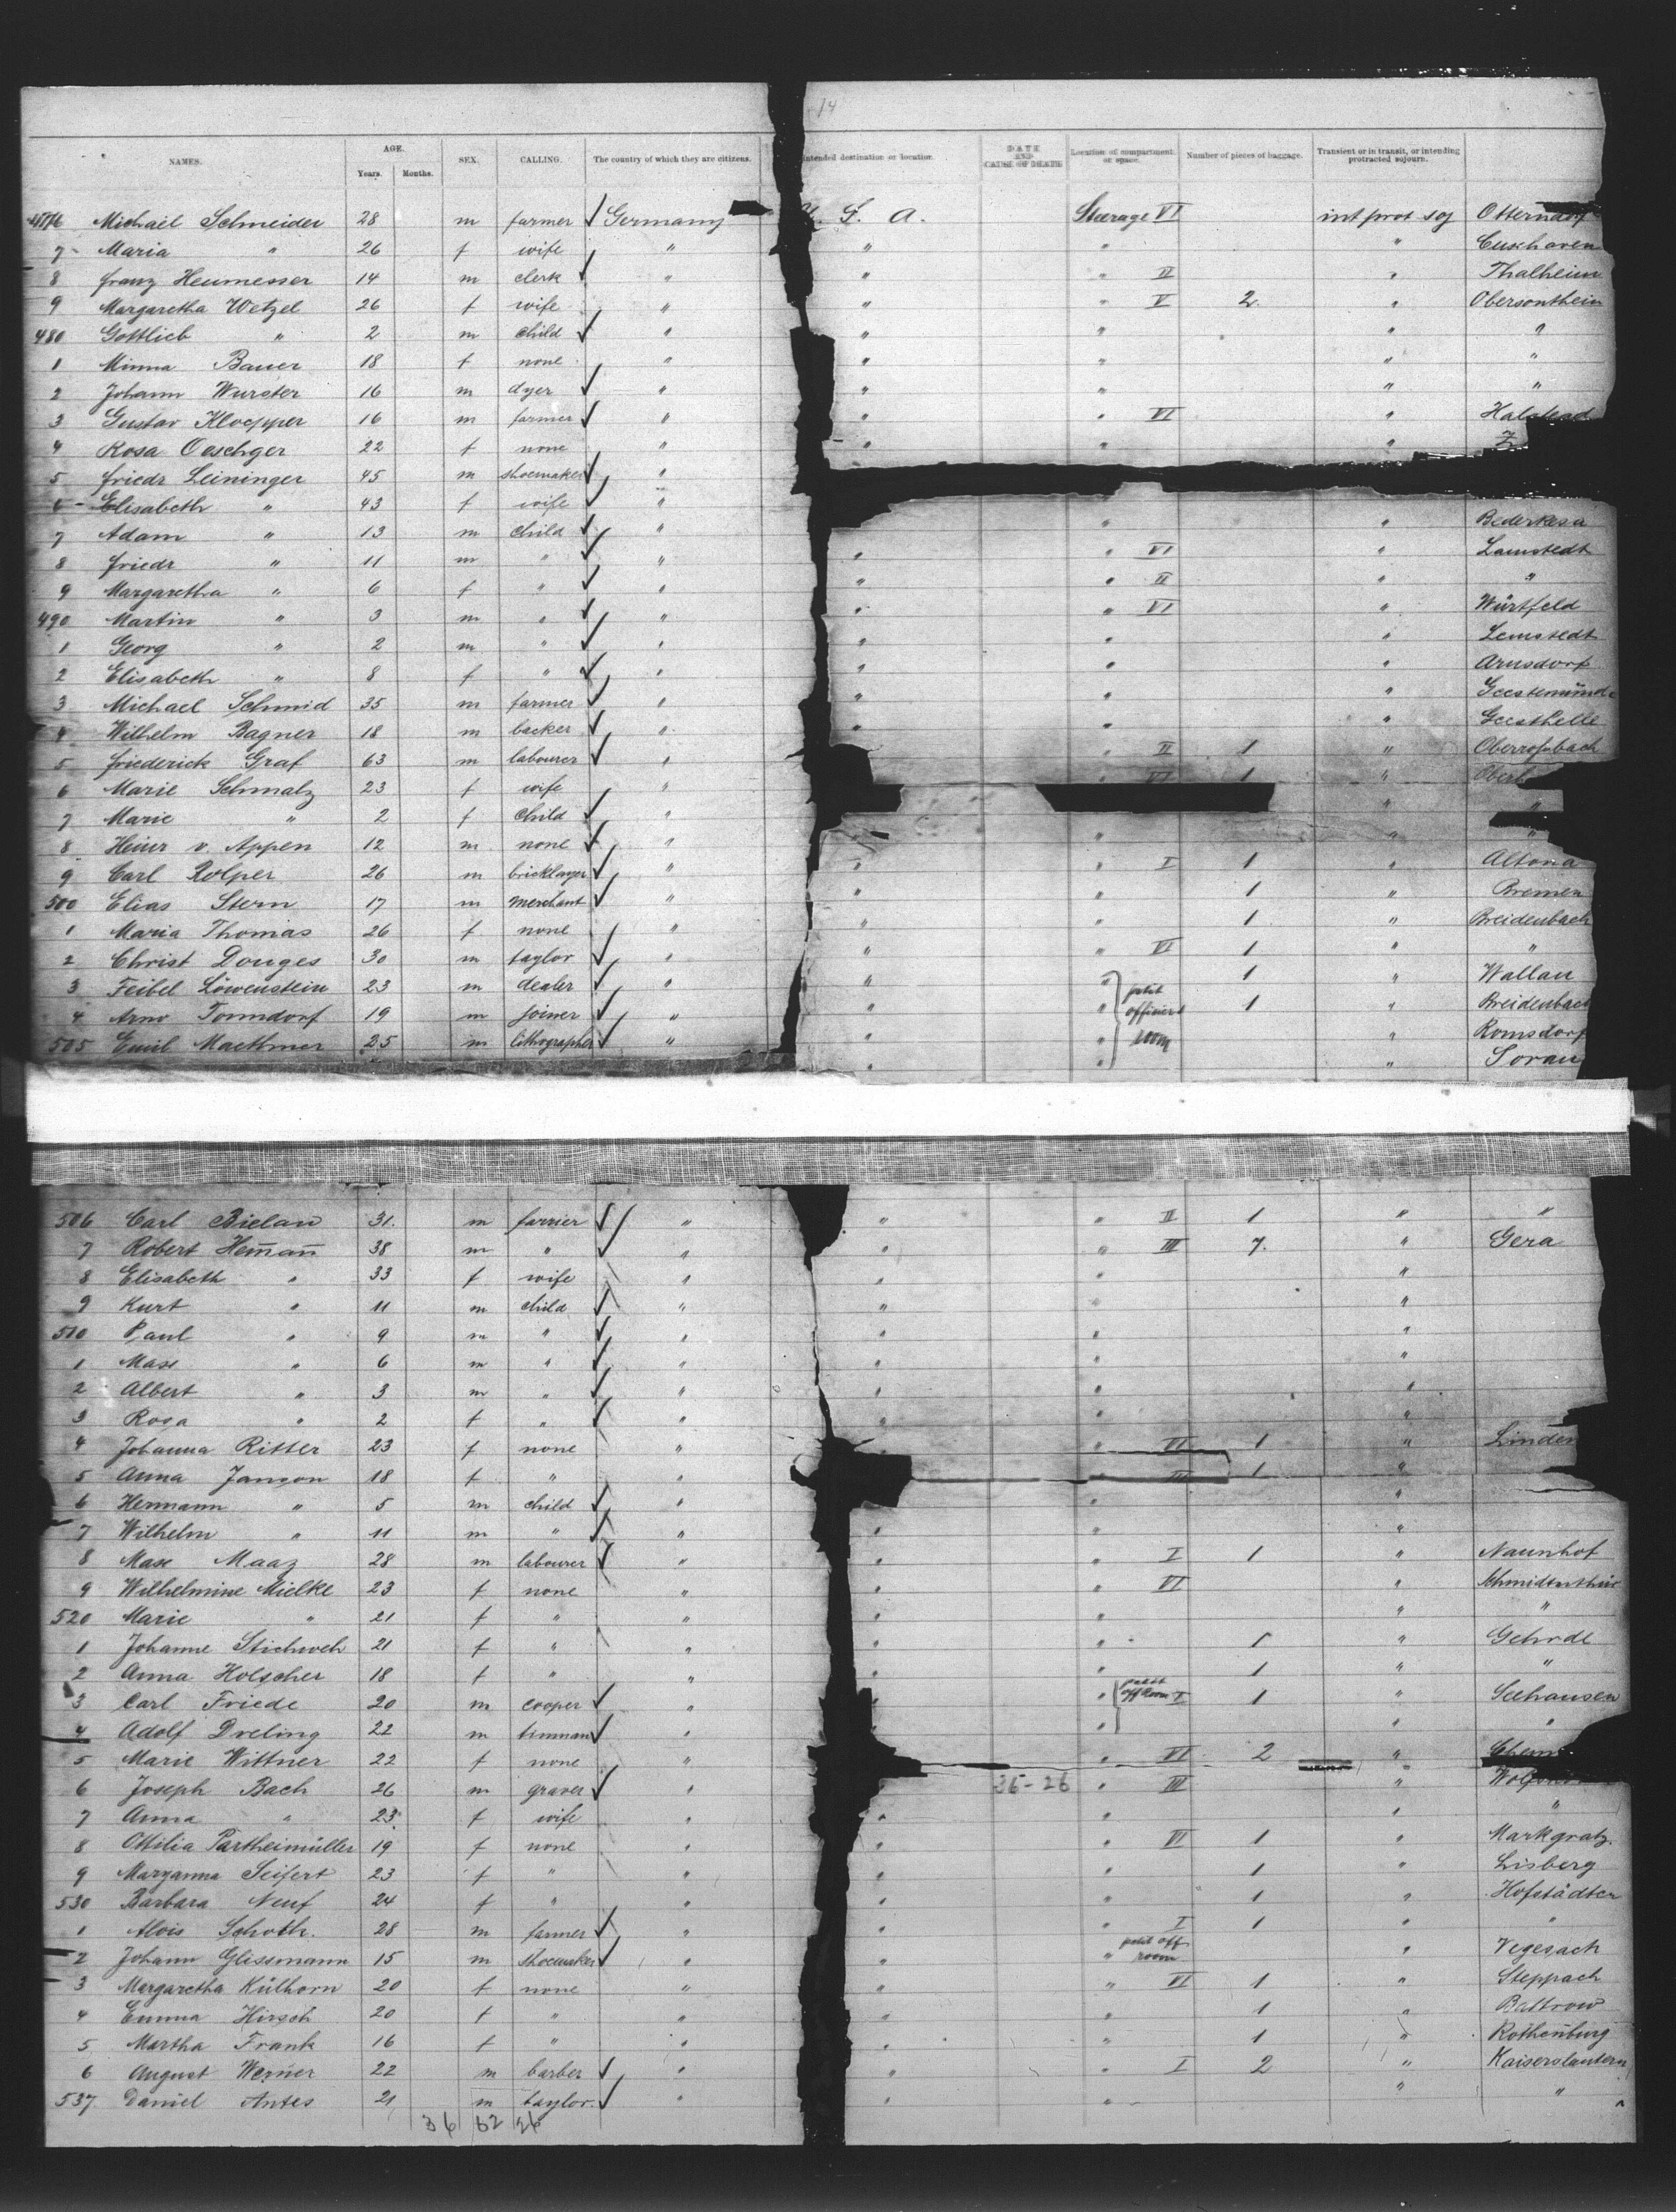 14
NAMES. AGE. Years. Months. SEX. CALLING. The country of which they are citizens. Intended destination or location. DATE AND CAUSE OF DEATH Location of compartment or space. Number of pieces of baggage. Transient or in transit, or intending protracted sojourn.
476 Michael Schneider 28 m farmer ✓ Germany U. S. A. Steerage VI int prot soj Otterndorf
7 Maria " 26 f wife " " " " Cuxhaven
8 Franz Heumesser 14 m clerk ✓ " " " II " Thalheim
9 Margaretha Wetzel 26 f wife " " " V 2 " Obersontheim
480 Gottlieb " 2 m child ✓ " " " " "
1 Minna Bauer 18 f none " " " " "
2 Johann Wurster 16 m dyer ✓ " " " " "
3 Gustav Kloepper 16 m farmer ✓ " " " VI " Halstead
4 Rosa Oeschger 22 f none " " " "
5 Friedr Leininger 45 m shoemaker ✓ "
6 Elisabeth " 43 f wife ✓ " " " Bederkesa
7 Adam " 13 m child ✓ " " " VI " Lamstedt
8 Friedr " 11 m " ✓ " " " II " "
9 Margaretha " 6 f " ✓ " " " VI " Würtfeld
490 Martin " 3 m " ✓ " " " " Lemstedt
1 Georg " 2 m " ✓ " " " " Arnsdorf
2 Elisabeth " 8 f " ✓ " " " " Geestemünde
3 Michael Schmid 35 m farmer ✓ " " " " Geesthelle
4 Wilhelm Bagner 18 m backer ✓ " " II 1 " Oberrossbach
5 Friederick Graf 63 m labourer ✓ " " VI 1 "
6 Marie Schmalz 23 f wife " " "
7 Marie " 2 f child ✓ " " " "
8 Heinr v. Appen 12 m none ✓ " " " I 1 " Altona
9 Carl Rolper 26 m bricklayer ✓ " " " 1 " Bremen
500 Elias Stern 17 m merchant ✓ " " " 1 " Breidenbach
1 Maria Thomas 26 f none " " " VI 1 " "
2 Christ Donges 30 m taylor ✓ " " " 1 " Wallau
3 Feibel Löwenstein 23 m dealer ✓ " " " petit officiers room 1 " Breidenbach
4 Arno Tonndorf 19 m joiner ✓ " " " " Romsdorf
505 Emil Maethner 25 m lithographer ✓ " " " " Sorau
506 Carl Bielau 31. m farrier ✓ " " " II 1 " "
7 Robert Hem̅an̅ 38 m " ✓ " " " III 7. " Gera
8 Elisabeth " 33 f wife " " " "
9 Kurt " 11 m child ✓ " " " "
510 Paul " 9 m " ✓ " " " "
1 Max " 6 m " ✓ " " " "
2 Albert " 3 m " ✓ " " " "
3 Rosa " 2 f " ✓ " " " "
4 Johanna Ritter 23 f none " " " VI 1 " Linden
5 Anna Janson 18 f " " III 1 "
6 Hermann " 5 m child ✓ " " "
7 Wilhelm " 11 m " ✓ " " " "
8 Max Maaz 28 m labourer ✓ " " " I 1 " Naunhof
9 Wilhelmine Mielke 23 f none " " " VI "
520 Marie " 21 f " " " " " "
1 Johanne Stichweh 21 f " " " " 1 " Gehrde
2 Anna Holscher 18 f " " " " 1 " "
3 Carl Friede 20 m cooper ✓ " " " petit off Room I 1 " Seehausen
4 Adolf Dreling 22 m tinman ✓ " " " " "
5 Marie Wittner 22 f none " " VI 2 "
6 Joseph Bach 26 m graver ✓ " " 36-26 " III "
7 Anna " 23 f wife " " " " "
8 Ottilia Partheimüller 19 f none " " " VI 1 " Markgratz.
9 Maryanna Seifert 23 f " " " " 1 " Lisberg
530 Barbara Neuf 24 f " " " " 1 " Hofstädten
1 Alois Schoth. 28 m farmer ✓ " " " I 1 " "
2 Johann Glissmann 15 m shoemaker ✓ " " " petit off room " Vegesach
3 Margaretha Külhorn 20 f none " " " VI 1 " Steppach
4 Emma Hirsch 20 f " " " " 1 " Battrow
5 Martha Frank 16 f " " " " 1 " Rothenburg
6 August Werner 22 m barber ✓ " " " I 2 " Kaiserslautern
537 Daniel Antes 21 m taylor. ✓ " " " " "
36 62 26